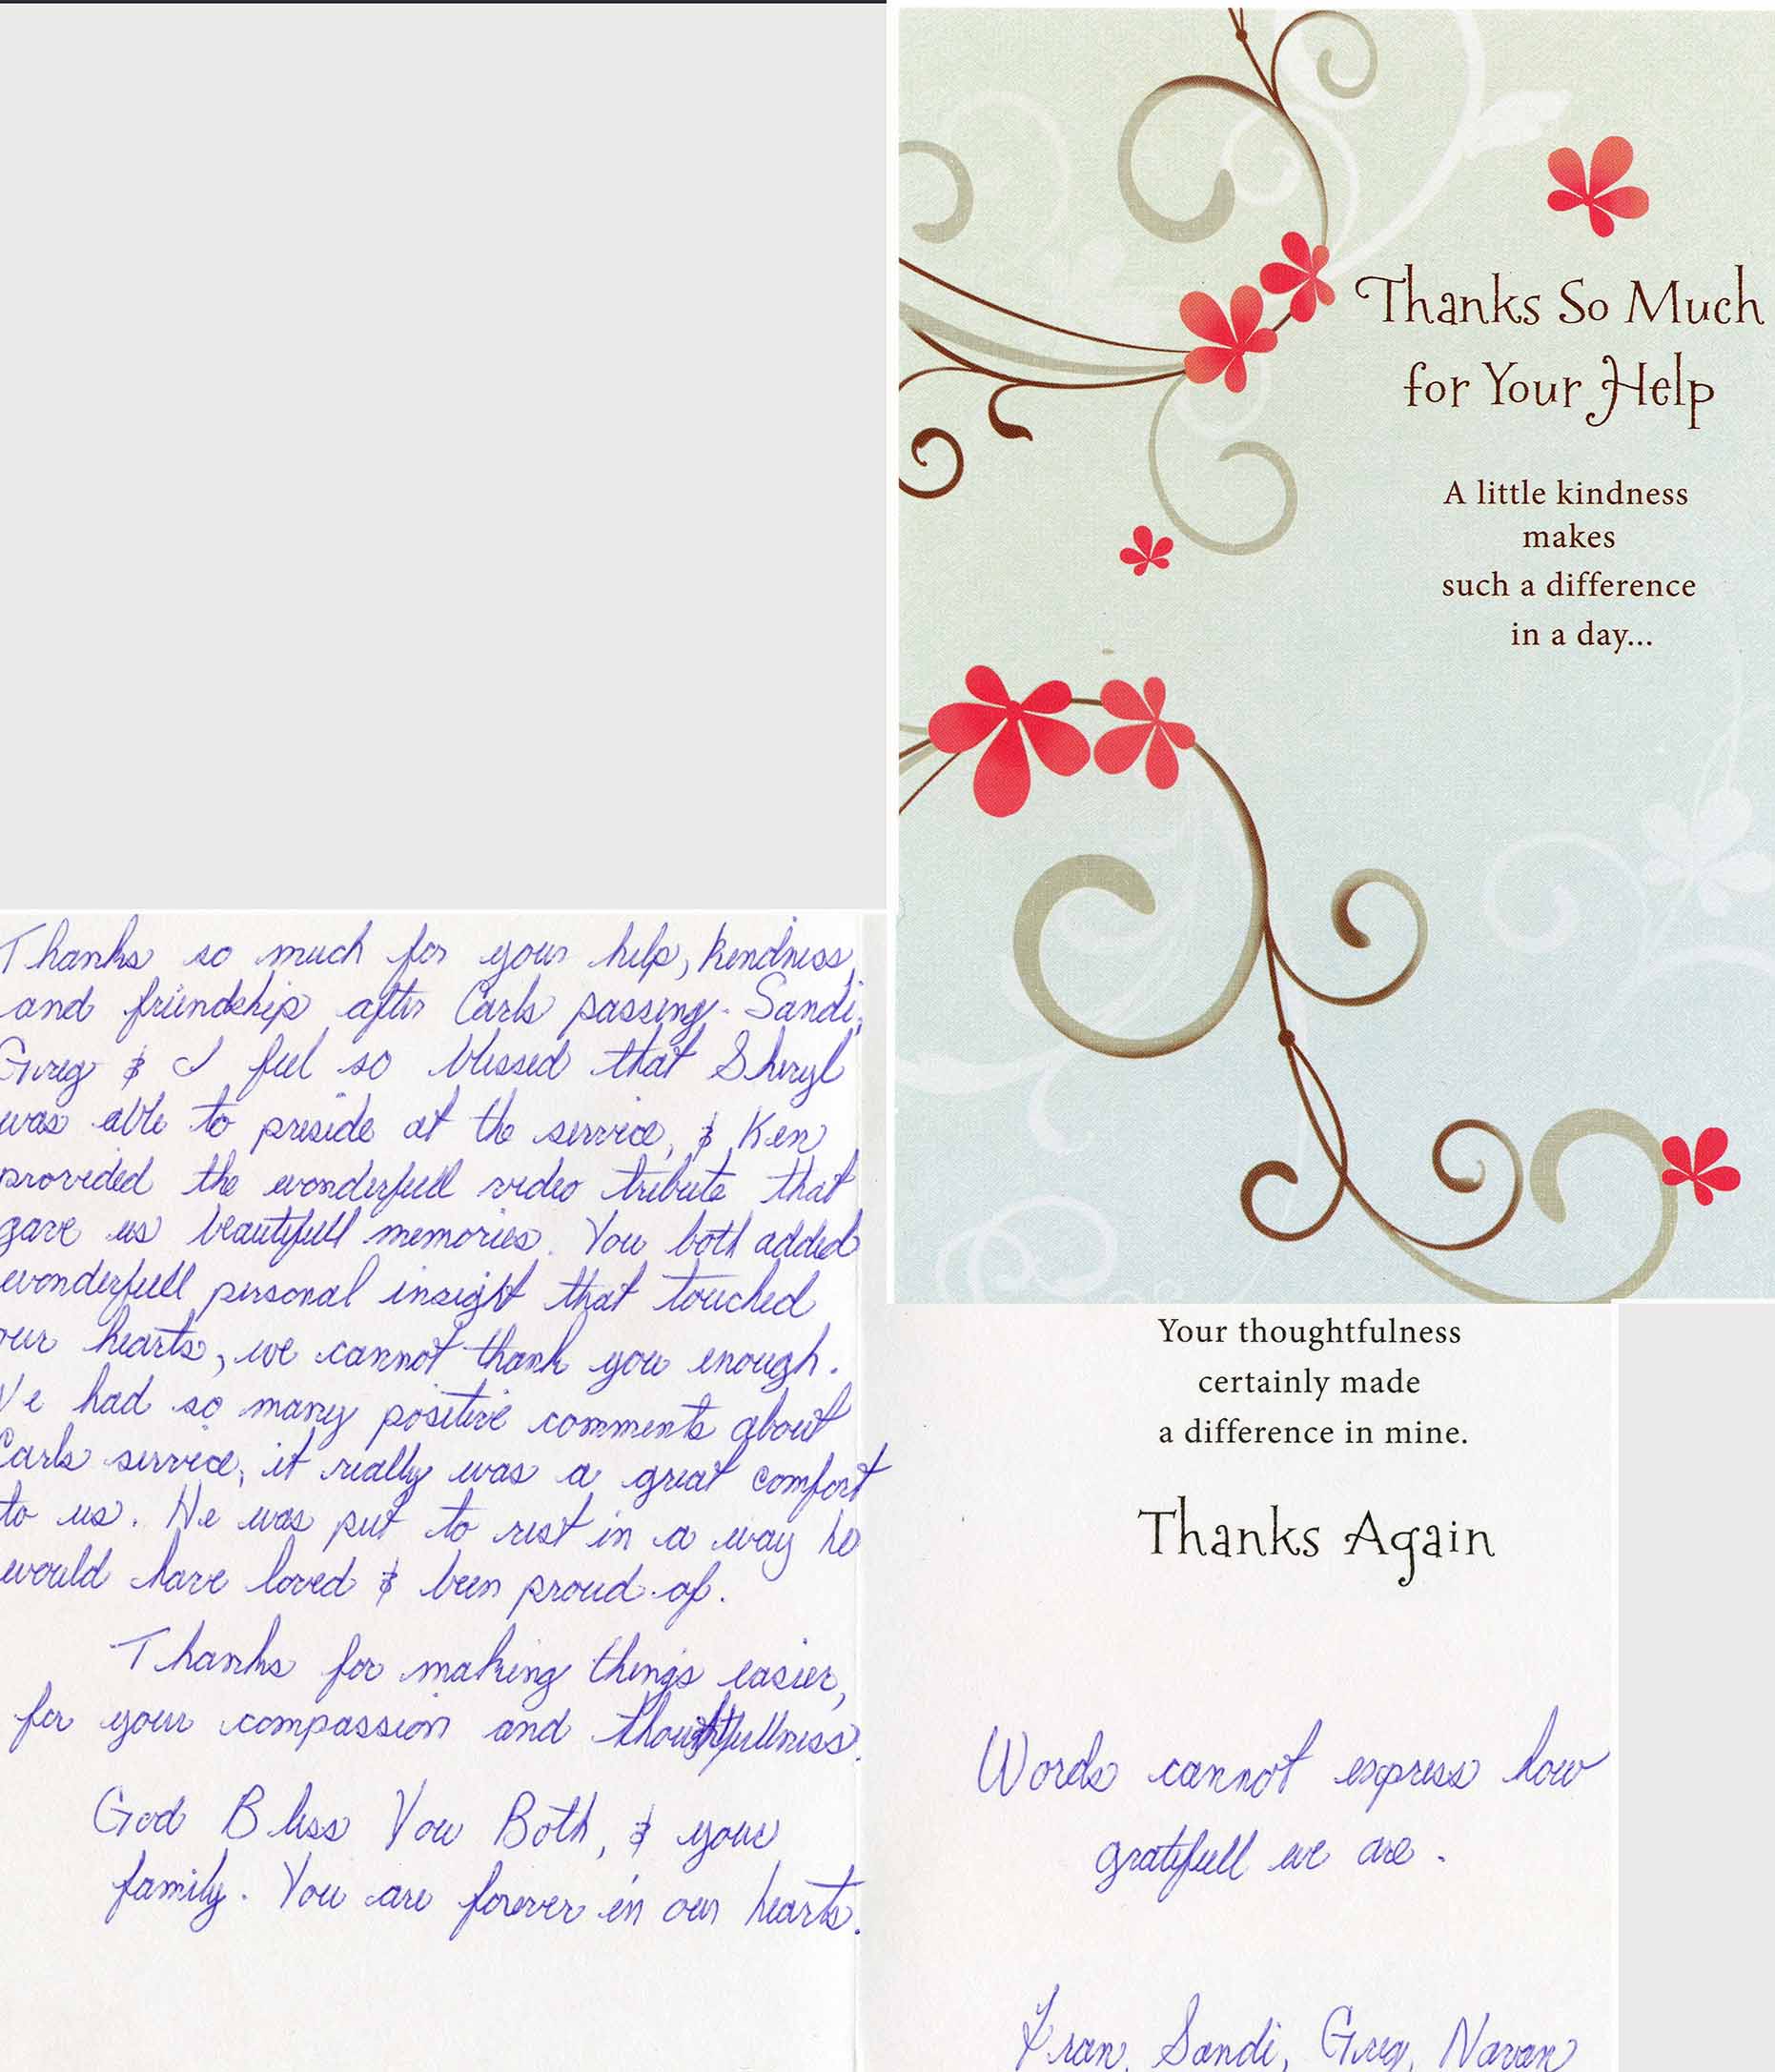 Thanks So Much
for Your Help
A little kindness
makes
such a difference
in a day...
Thanks so much for your help, kindness
and friendship after Carls passing. Sandi,
Greg & I feel so blessed that Sheryl
was able to preside at the service, & Ken
provided the wonderfull video tribute that
gave us beautifull memories. You both added
wonderfull personal insight that touched
our hearts, we cannot thank you enough.
We had so many positive comments about
Carls service, it really was a great comfort
to us. He was put to rest in a way he
would have loved & been proud of.
Thanks for making things easier,
for your compassion and thoughtfullness.
God Bless You Both, & your
family. You are forever in our hearts.
Your thoughtfulness
certainly made
a difference in mine.
Thanks Again
Words cannot express how
gratefull we are.
Fran, Sandi, Greg, Navan